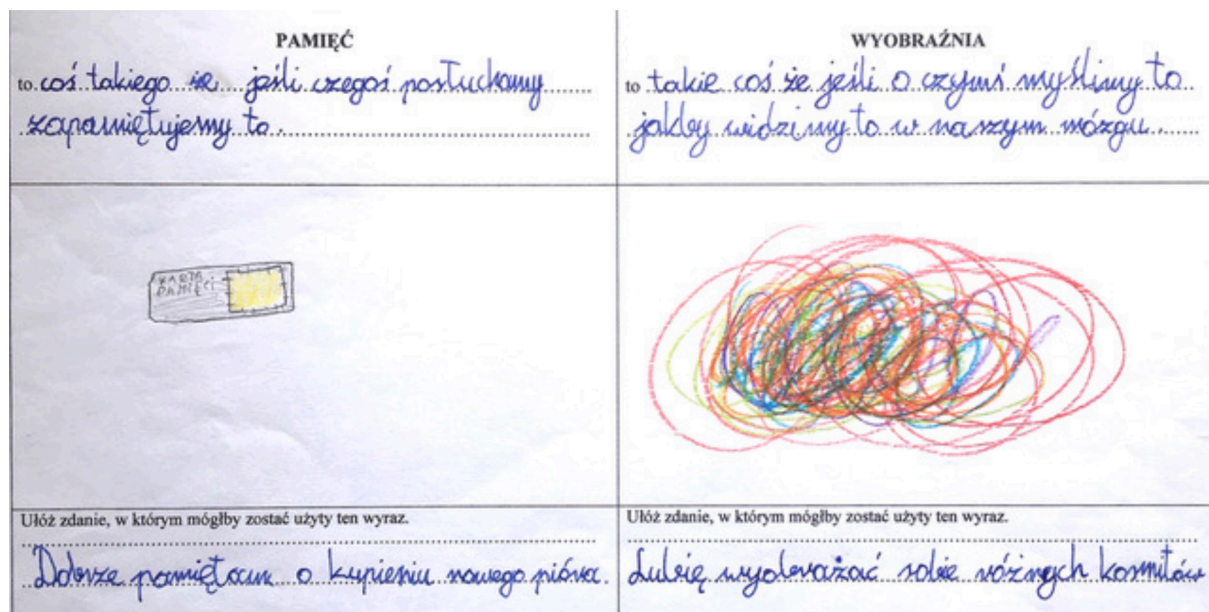 PAMIĘĆ
to coś takiego że jeśli czegoś posłuchamy
zapamiętujemy to.
KARTA
PAMIĘCI
Ułóż zdanie, w którym mógłby zostać użyty ten wyraz.
Dobrze pamiętam o kupieniu nowego pióra.
WYOBRAŹNIA
to takie coś że jeśli o czymś myślimy to
jakby widzimy to w naszym mózgu.
Ułóż zdanie, w którym mógłby zostać użyty ten wyraz.
Lubię wyobrażać sobie różnych kosmitów